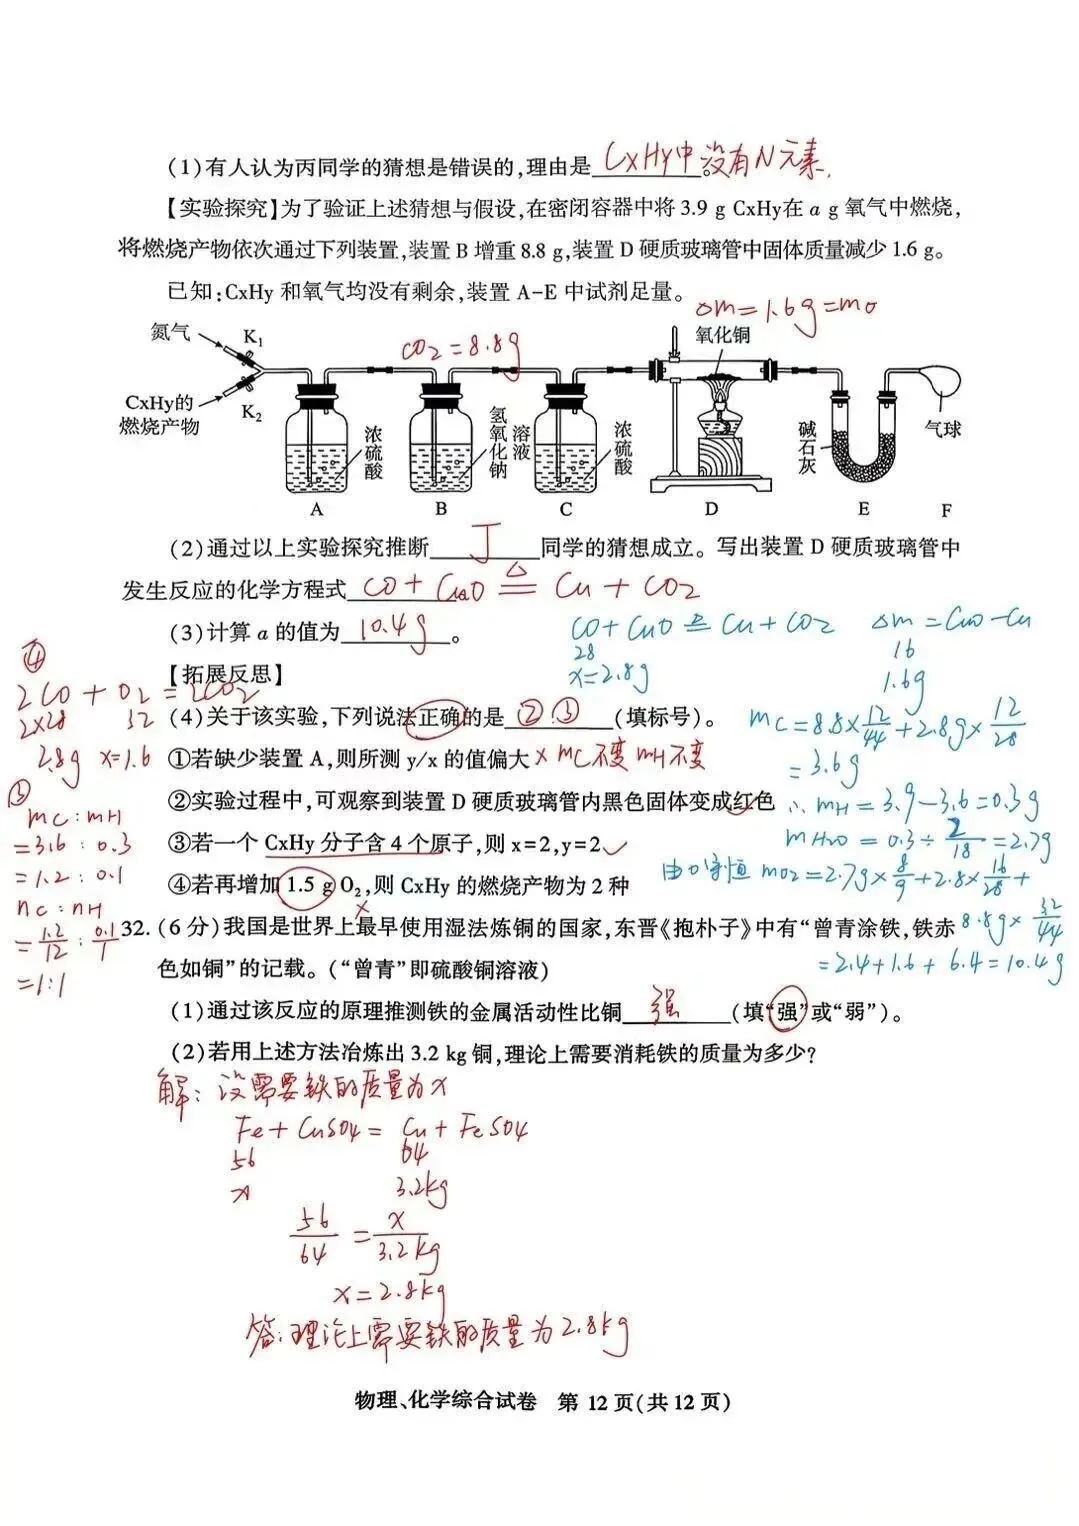 (1)有人认为丙同学的猜想是错误的,理由是 CxHy中没有N元素.
【实验探究】为了验证上述猜想与假设,在密闭容器中将 3.9 g CxHy在 a g 氧气中燃烧,
将燃烧产物依次通过下列装置,装置 B 增重 8.8 g,装置 D 硬质玻璃管中固体质量减少 1.6 g。
已知:CxHy 和氧气均没有剩余,装置 A-E 中试剂足量。
△m=1.6g=mO
氮气 K1
CO2=8.8g
氧化铜
CxHy的
燃烧产物
K2
浓硫酸
氢氧化钠溶液
浓硫酸
碱石灰
气球
A B C D E F
(2)通过以上实验探究推断 丁 同学的猜想成立。写出装置 D 硬质玻璃管中
发生反应的化学方程式 CO+CuO △= Cu+CO2
(3)计算 a 的值为 10.4g 。
CO+CuO △= Cu+CO2 △m=CuO-Cu
28 16
x=2.8g 1.6g
【拓展反思】
④
2CO+O2=2CO2
2×28 32
2.8g x=1.6
(4)关于该实验,下列说法正确的是 ②③ (填标号)。
mC=8.8×12/44+2.8g×12/28
=3.6g
①若缺少装置 A,则所测 y/x 的值偏大 × mC不变 mH不变
②实验过程中,可观察到装置 D 硬质玻璃管内黑色固体变成红色
∴mH=3.9-3.6=0.3g
mH2O=0.3÷2/18=2.7g
③
mC:mH
=3.6:0.3
=1.2:0.1
nC:nH
=1.2/12:0.1/1
=1:1
③若一个 CxHy 分子含 4 个原子,则 x=2,y=2
④若再增加 1.5 g O2,则 CxHy 的燃烧产物为 2 种 ×
由O守恒 mO2=2.7g×8/9+2.8×16/28+
8.8g×32/44
=2.4+1.6+6.4=10.4g
32.(6 分)我国是世界上最早使用湿法炼铜的国家,东晋《抱朴子》中有“曾青涂铁,铁赤
色如铜”的记载。(“曾青”即硫酸铜溶液)
(1)通过该反应的原理推测铁的金属活动性比铜 强 (填“强”或“弱”)。
(2)若用上述方法冶炼出 3.2 kg 铜,理论上需要消耗铁的质量为多少?
解:设需要铁的质量为x
Fe+CuSO4=Cu+FeSO4
56 64
x 3.2kg
56/64=x/3.2kg
x=2.8kg
答:理论上需要铁的质量为2.8kg
物理、化学综合试卷 第 12 页(共 12 页)